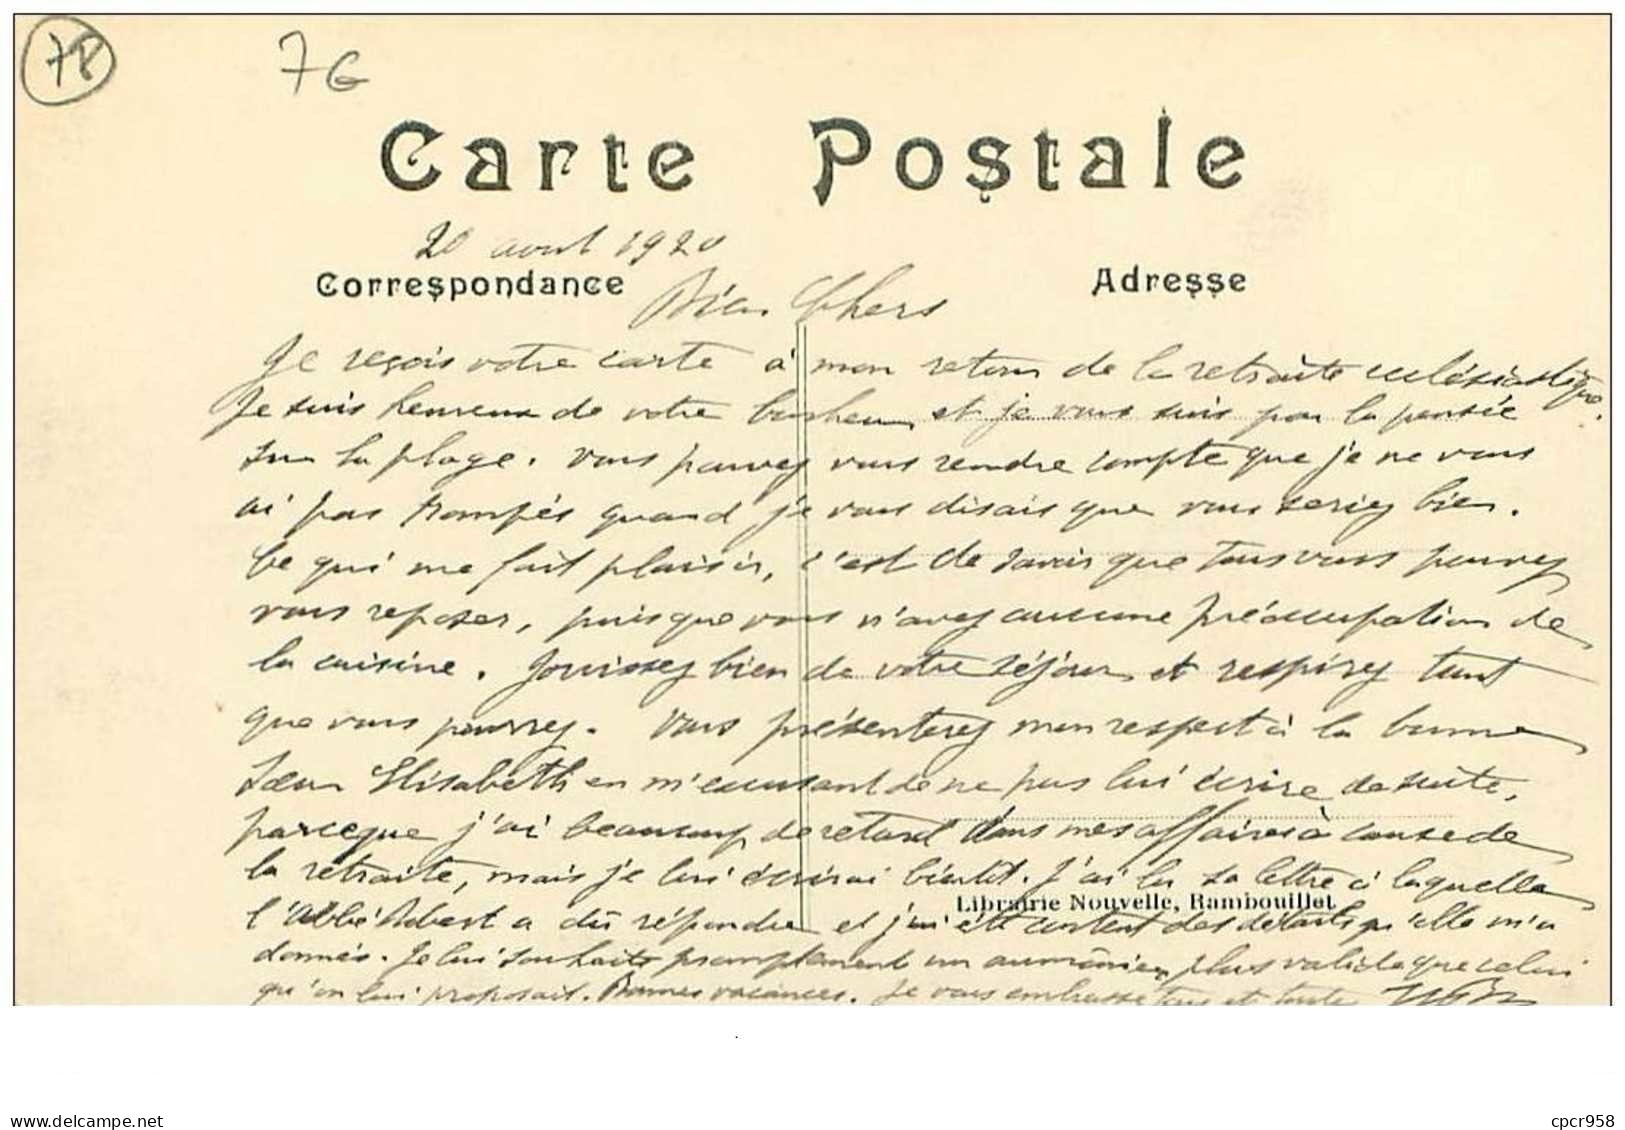 78
7G
Carte Postale
20 aout 1920
Correspondance
Adresse
Bien Chers
Je reçois votre carte à mon retour de la retraite ecclésiastique.
Je suis heureux de votre bonheur et je vous suis par la pensée
sur la plage. Vous pouvez vous rendre compte que je ne vous
ai pas trompés quand je vous disais que vous seriez bien.
Ce qui me fait plaisir, c'est de savoir que tous vous pouvez
vous reposer, puisque vous n'avez aucune préoccupation de
la cuisine. Jouissez bien de votre séjour et respirez tant
que vous pourrez. Vous présenterez mon respect à la bonne
Sœur Elisabeth en m'excusant de ne pas lui écrire de suite,
parceque j'ai beaucoup de retard dans mes affaires à cause de
la retraite, mais je lui écrirai bientôt. J'ai lu sa lettre à laquelle
Librairie Nouvelle, Rambouillet
l'Abbé Robert a dû répondre et j'ai été content des détails qu'elle m'a
donnés. Je lui souhaite promptement un aumônier plus valide que celui
qu'on lui proposait. Bonnes vacances. Je vous embrasse tous et toute
delcampe.net
cpcr958